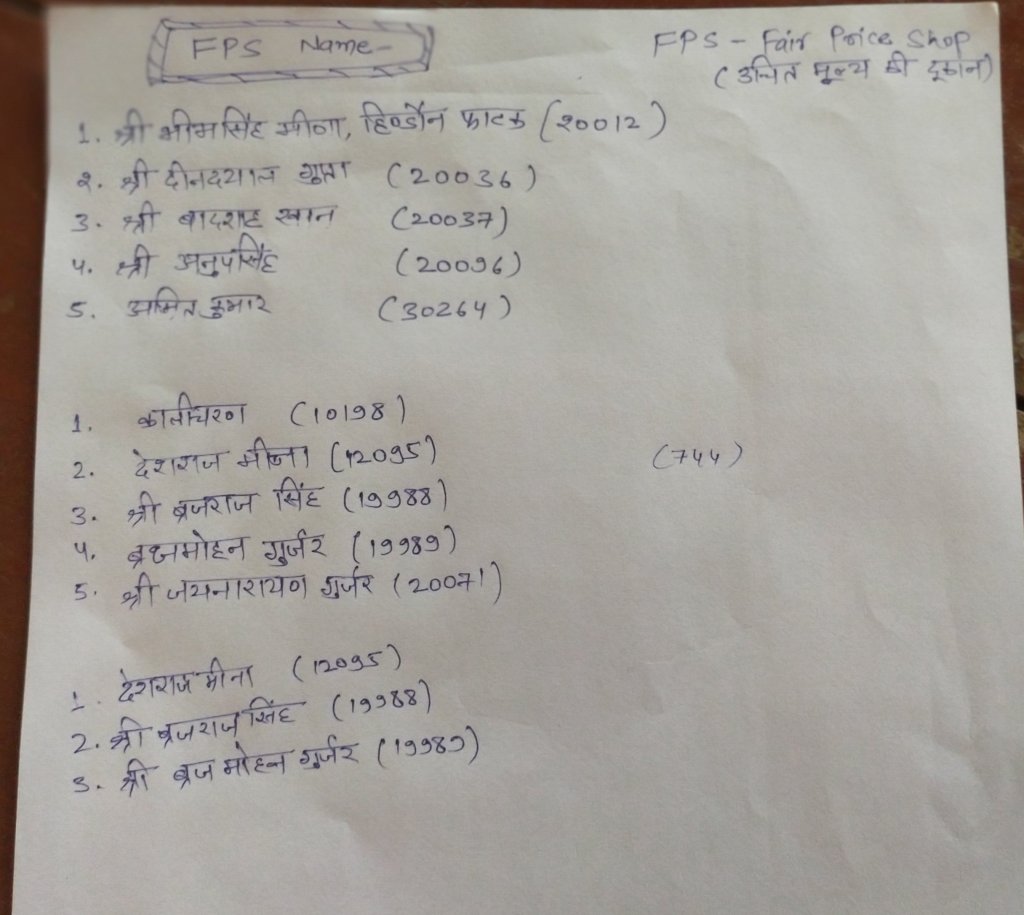 FPS Name-
FPS - Fair Price Shop
(उचित मूल्य की दूकान)
1. श्री भीमसिंह मीणा, हिण्डौन फाटक (20012)
2. श्री दीनदयाल गुप्ता (20036)
3. श्री बादशाह खान (20037)
4. श्री अनुपसिंह (20096)
5. अमित कुमार (30264)
1. कालीचरण (10198)
2. देशराज मीना (12095)
(744)
3. श्री ब्रजराज सिंह (19988)
4. ब्रजमोहन गुर्जर (19989)
5. श्री जयनारायण गुर्जर (20071)
1. देशराज मीना (12095)
2. श्री ब्रजराज सिंह (19988)
3. श्री ब्रज मोहन गुर्जर (19989)